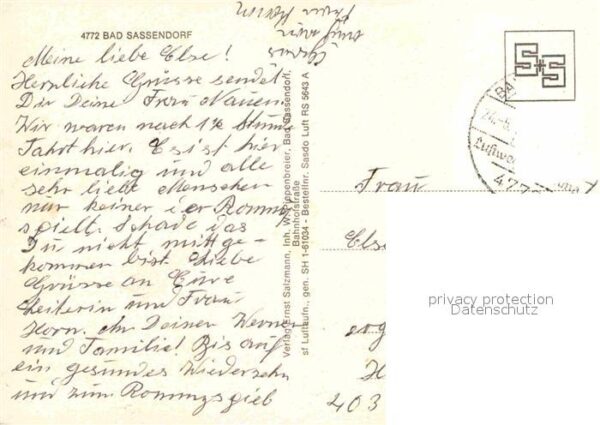 4772 BAD SASSENDORF
Meine liebe Else!
Herzliche Grüsse sendet
Dir Deine Frau Nauen.
Wir waren nach 1½ Stund
Fahrt hier. Es ist hier
einmalig und alle
sehr liebe Menschen
nur keiner der Rommy
spielt. Schade das
Du nicht mittge-
kommen bist. Liebe
Grüsse an Eure
Leiterin und Frau
Horn.
und Familie! Bis auf
ein gesundes Wiedersehn
und zum Rommyspiel
Verlag Ernst Salzmann, Inh. W. Poppenbreier, Bad Sassendorf,
Bahnhofstraße
sf Luftaufn., gen. SH 1-61034 - Bestellnr. Sasdo Luft RS 5643 A
Frau
Else
403
privacy protection
Datenschutz